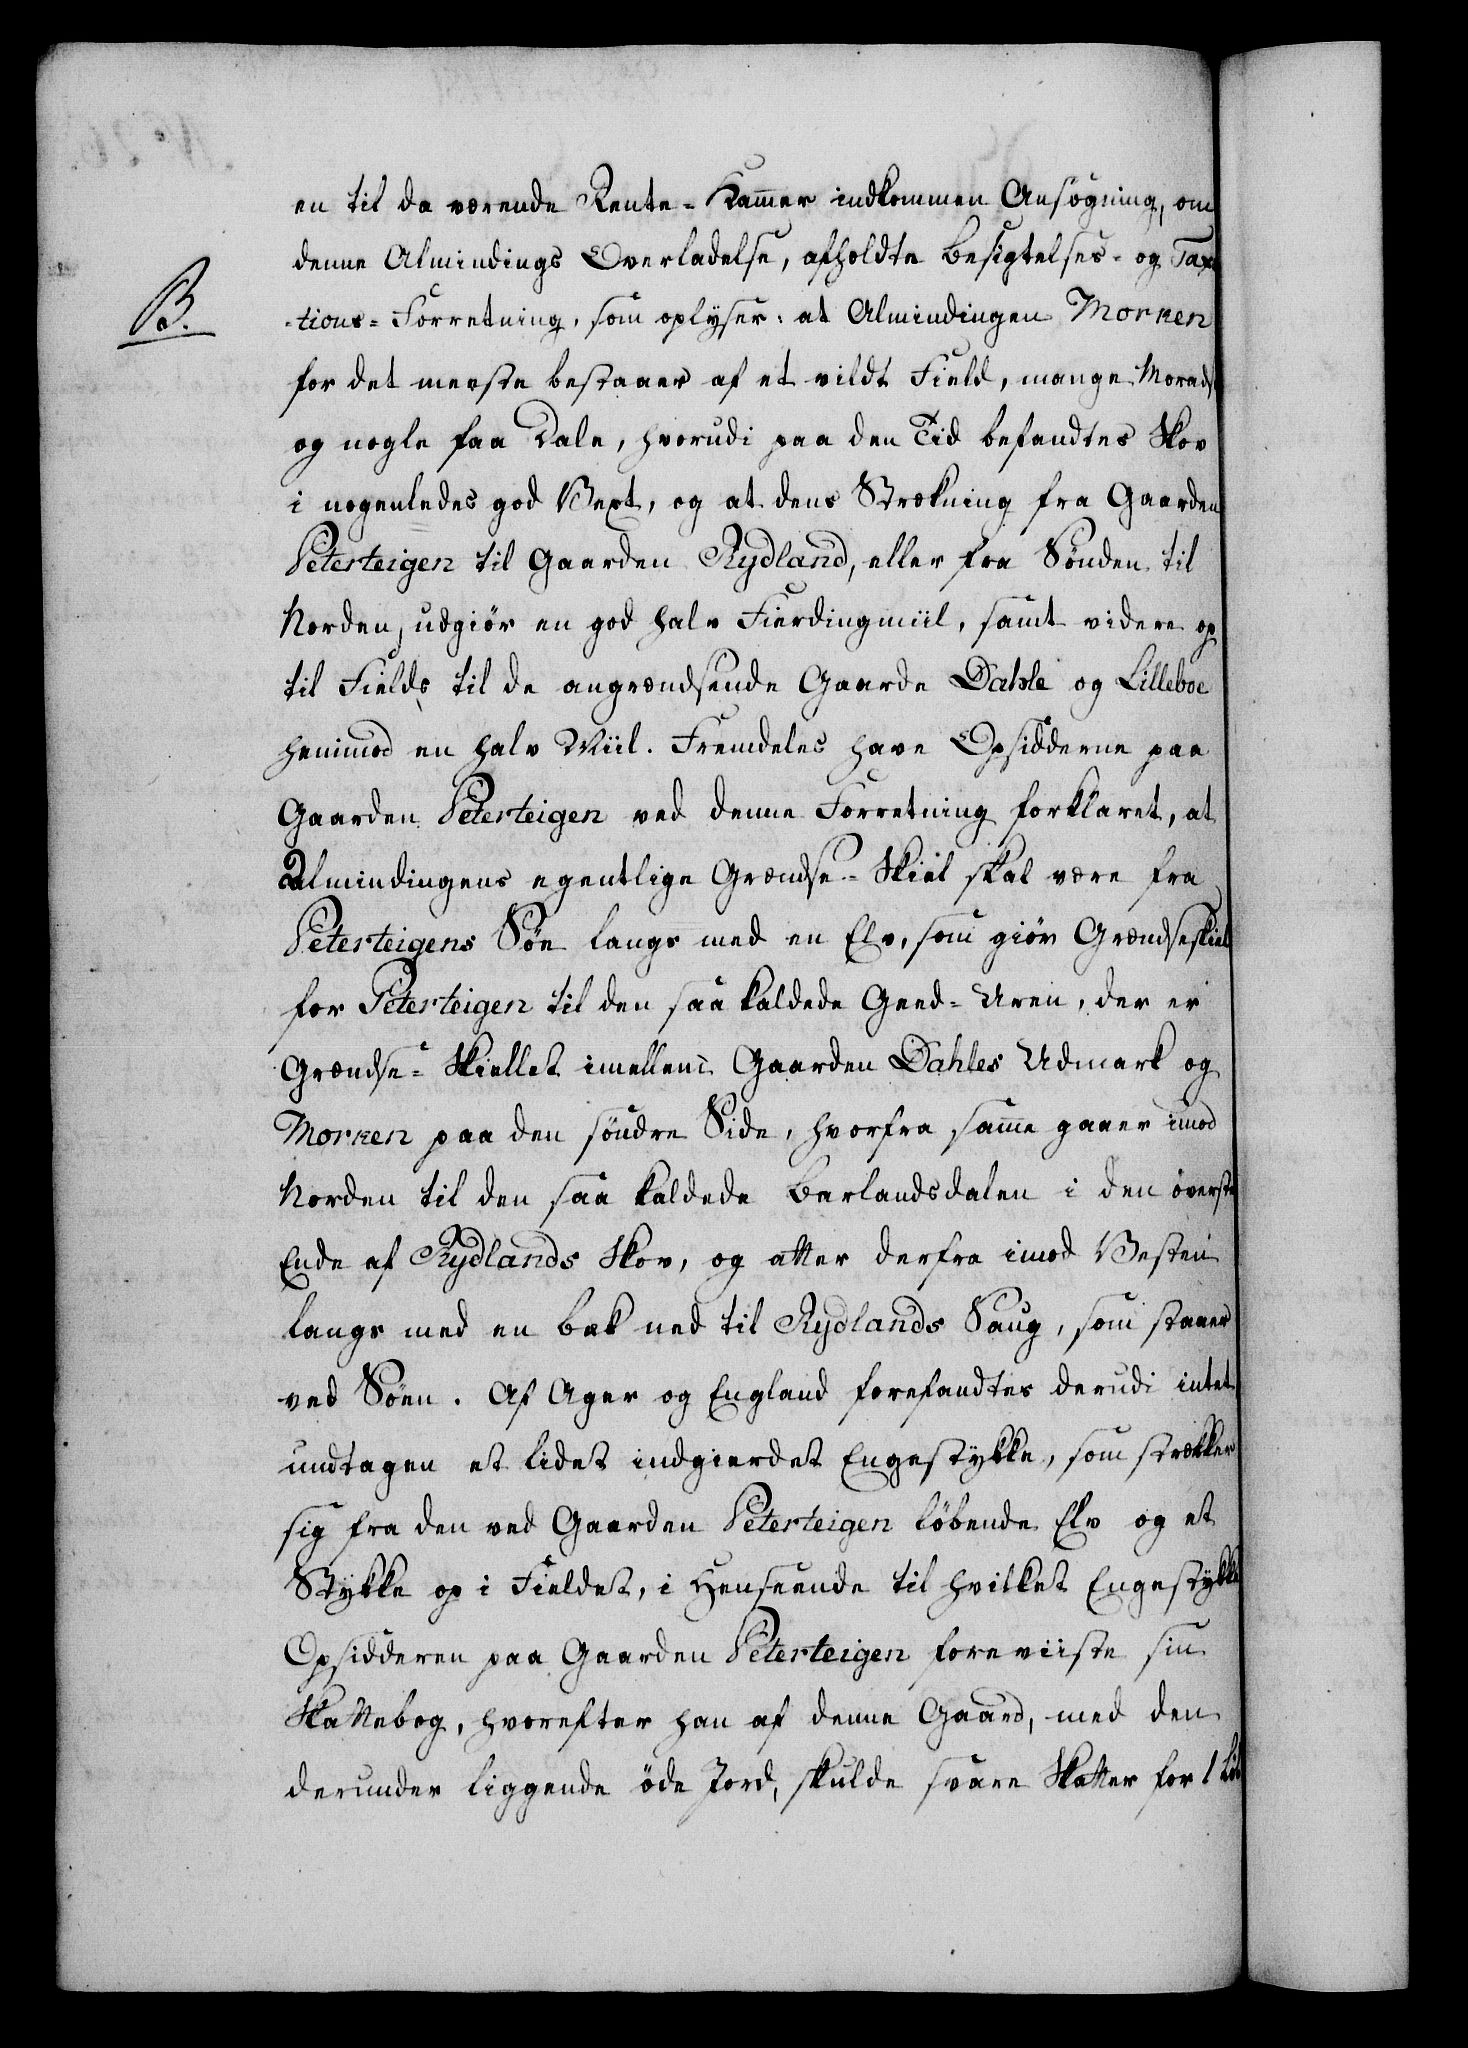 en til da værende Rente-Kammer indkommen Ansøgning, om
denne Almindings Overladelse, afholdte Besigtelses- og Taxa
B.
-tions-Forretning, som oplyser: at Almindingen Morken
for det meeste bestaaer af et vildt Field, mange Morads
og nogle faa Dale, hvorudi paa den Tid befandtes Skov
i nogenledes god Vext, og at dens Strækning fra Gaarden
Peterteigen til Gaarden Rydland, eller fra Sønden til
Norden, udgiør en god halv Fierdingmiil, samt videre op
til Fields til de angrændsende Gaarde Dahle og Lilleboe
henimod en halv Miil. Fremdeles have Opsidderne paa
Gaarden Peterteigen ved denne Forretning forklaret, at
Almindingens egentlige Grændse-Skiel skal være fra
Peterteigens Søe langs med en Elv, som giør Grændseskiel
for Peterteigen til den saa kaldede Geed-Uren, der er
Grændse-Skiellet imellem Gaarden Dahles Udmark og
Morken paa den søndre Side, hvorfra samme gaaer imod
Norden til den saa kaldede Barlandsdalen i den øverste
Ende af Rydlands Skov, og atter derfra imod Vesten
langs med en bæk ned til Rydlands Saug, som staaer
ved Søen. Af Ager og England forefandtes derudi intet
undtagen et lidet indgierdet Engestykke, som strækker
sig fra den ved Gaarden Peterteigen løbende Elv og et
Stykke op i Fieldet, i Henseende til hvilket Engestykke
Opsidderen paa Gaarden Peterteigen foreviiste sin
Skattebog, hvorefter han af denne Gaard, med den
derunder liggende øde Jord, skulde svare Skatter for 1